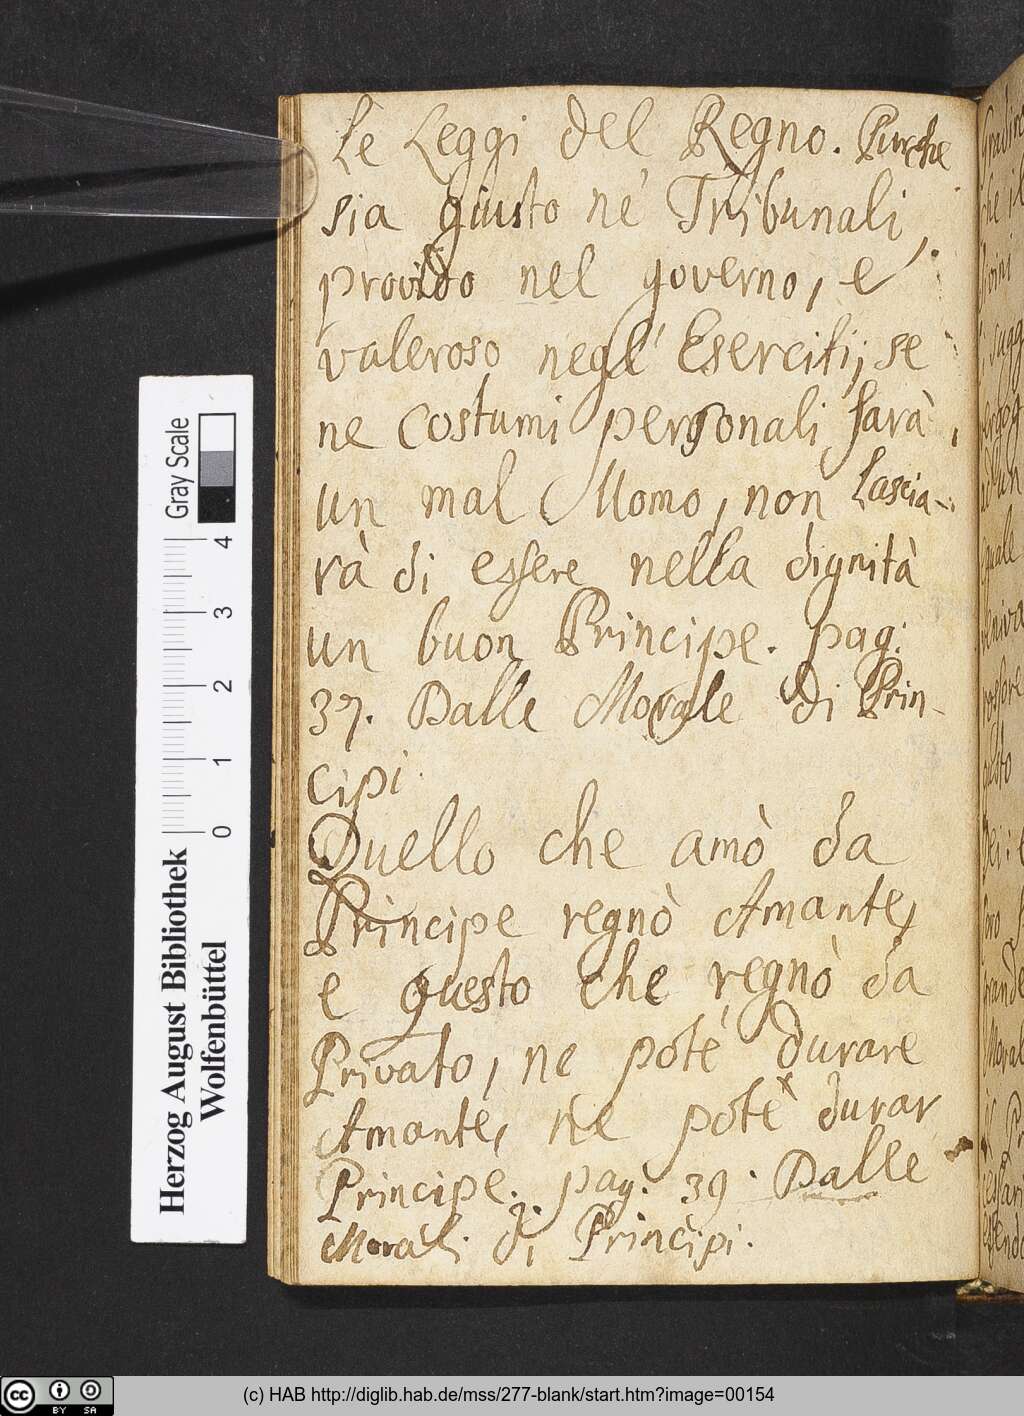 Le Leggi del Regno. Purche
sia giusto ne' Tribunali,
provido nel governo, e
valeroso negl' Eserciti, se
ne costumi personali sarà
un mal Momo, non lascia-
rà di essere nella dignità
un buon Principe. pag:
37. Dalle Morale di Prin-
cipi.
Quello che amò da
Principe regnò Amante,
e questo che regnò da
Privato, ne potè durare
Amante, ne potè durar
Principe. pag. 39. Dalle
Morali di Principi.
Gray Scale
0 1 2 3 4
Herzog August Bibliothek
Wolfenbüttel
cc BY SA
(c) HAB http://diglib.hab.de/mss/277-blank/start.htm?image=00154